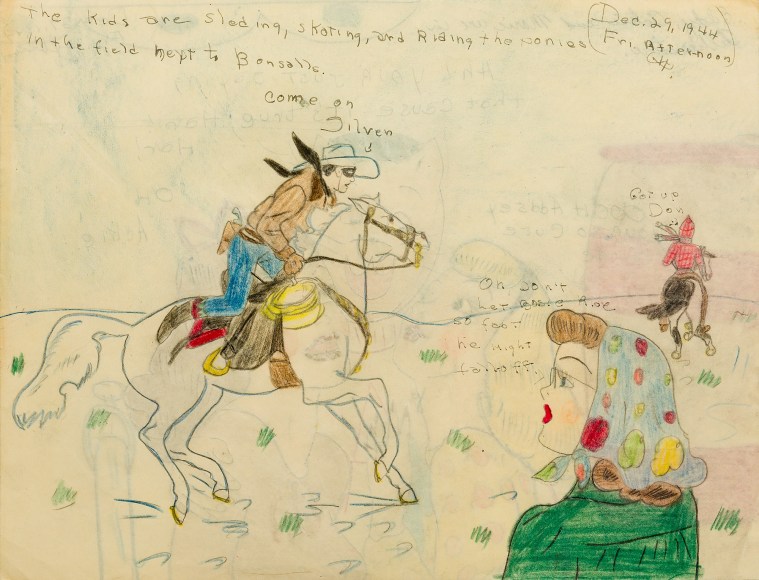 The Kids are Sleding, Skating, and Riding the ponies
in the field next to Bonsalls.
Dec. 29, 1944
Fri, Afternoon
Come on
Silver
Get up
Don
Oh don't
let ride
so fast
he might
fall off.